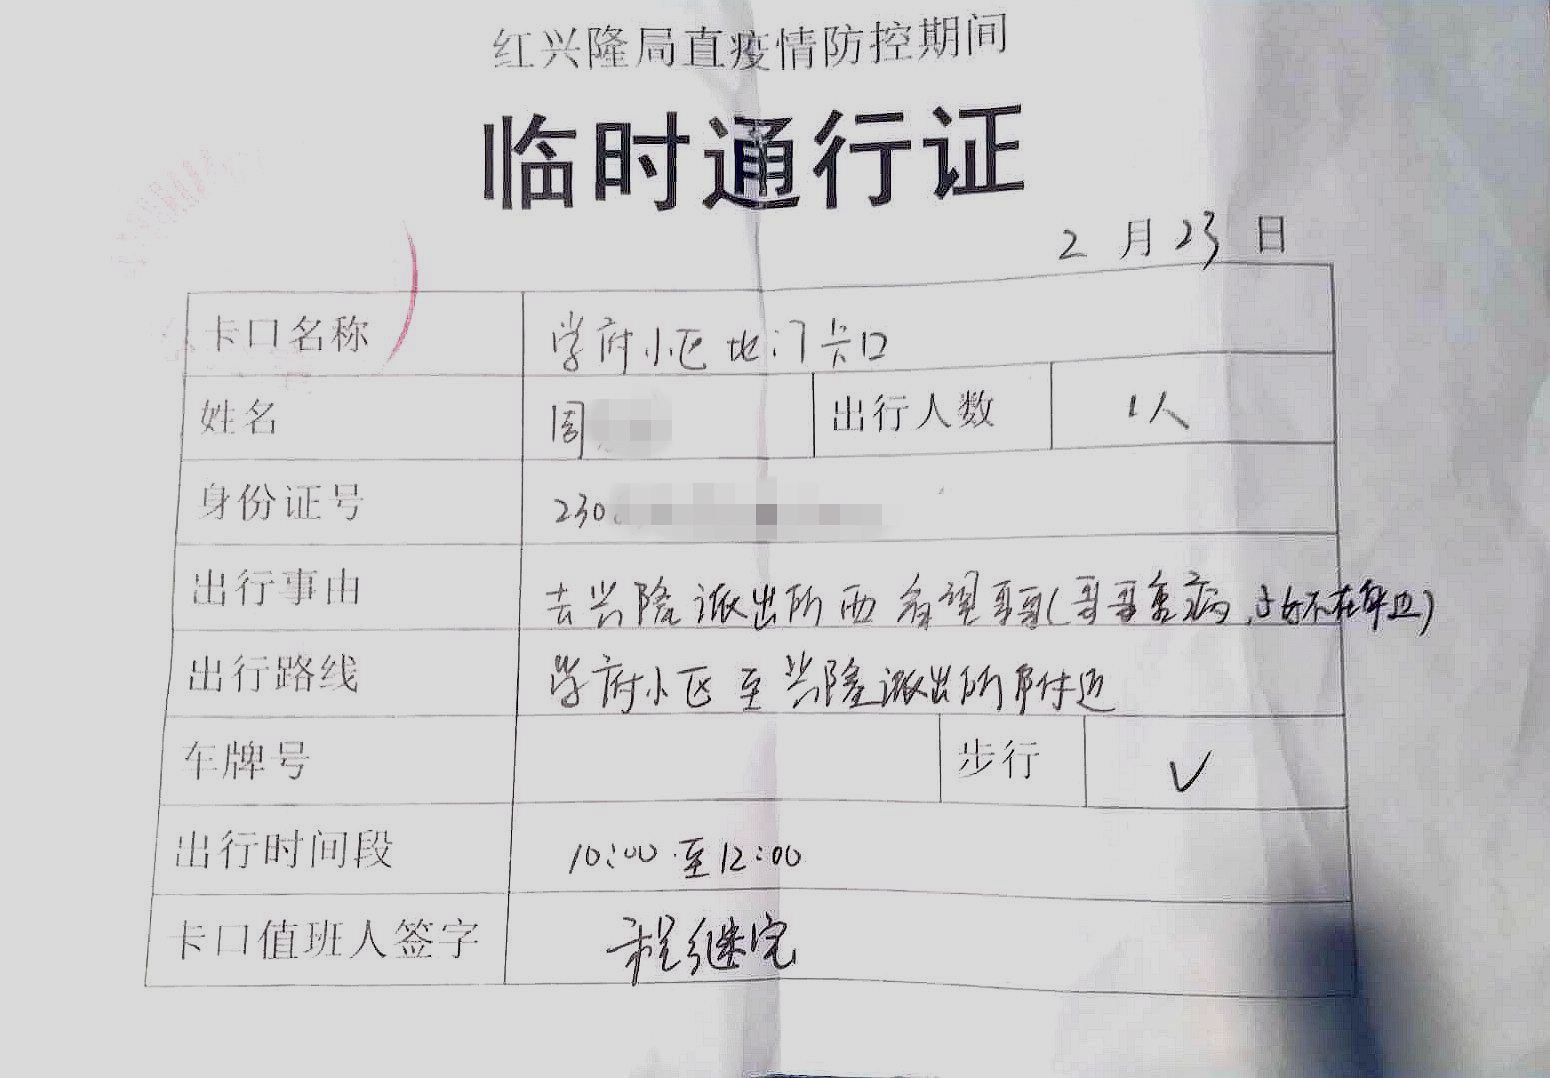 红兴隆局直疫情防控期间
临时通行证
2月23日
卡口名称 学府小区 门卡口
姓名 周 出行人数 1人
身份证号 230
出行事由 去兴隆派出所西看望哥哥(哥哥重病,子女不在身边)
出行路线 学府小区至兴隆派出所附近
车牌号 步行 √
出行时间段 10:00至12:00
卡口值班人签字 程继